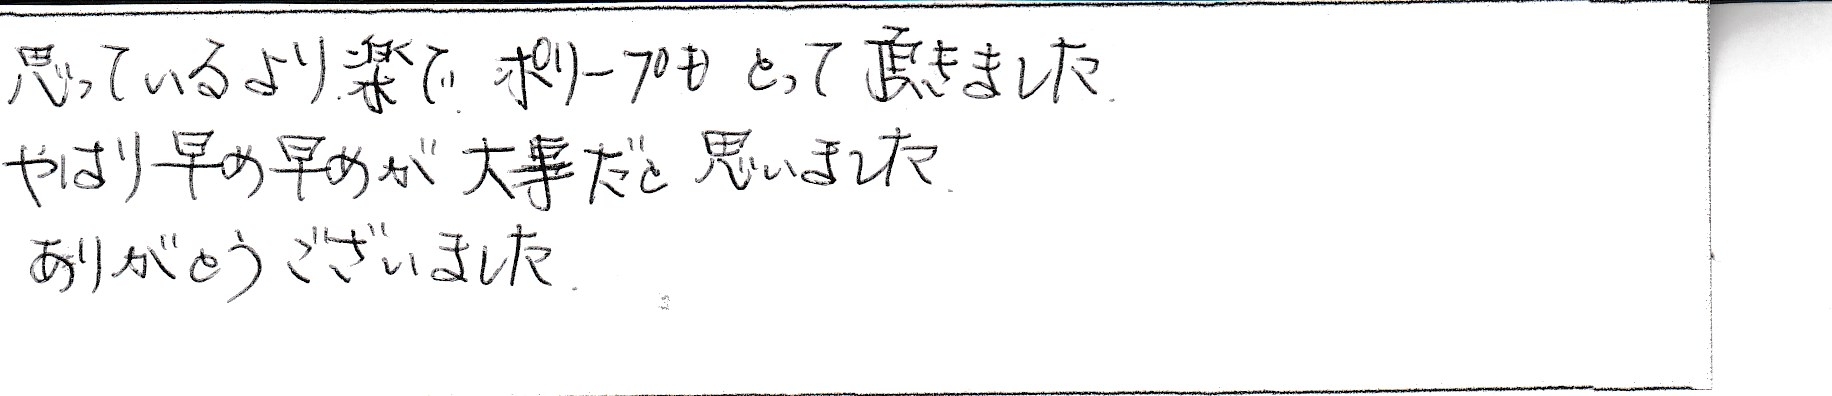 思っているより楽で ポリープも とって頂きました.
やはり早め早めが 大事だと 思いました.
ありがとうございました.